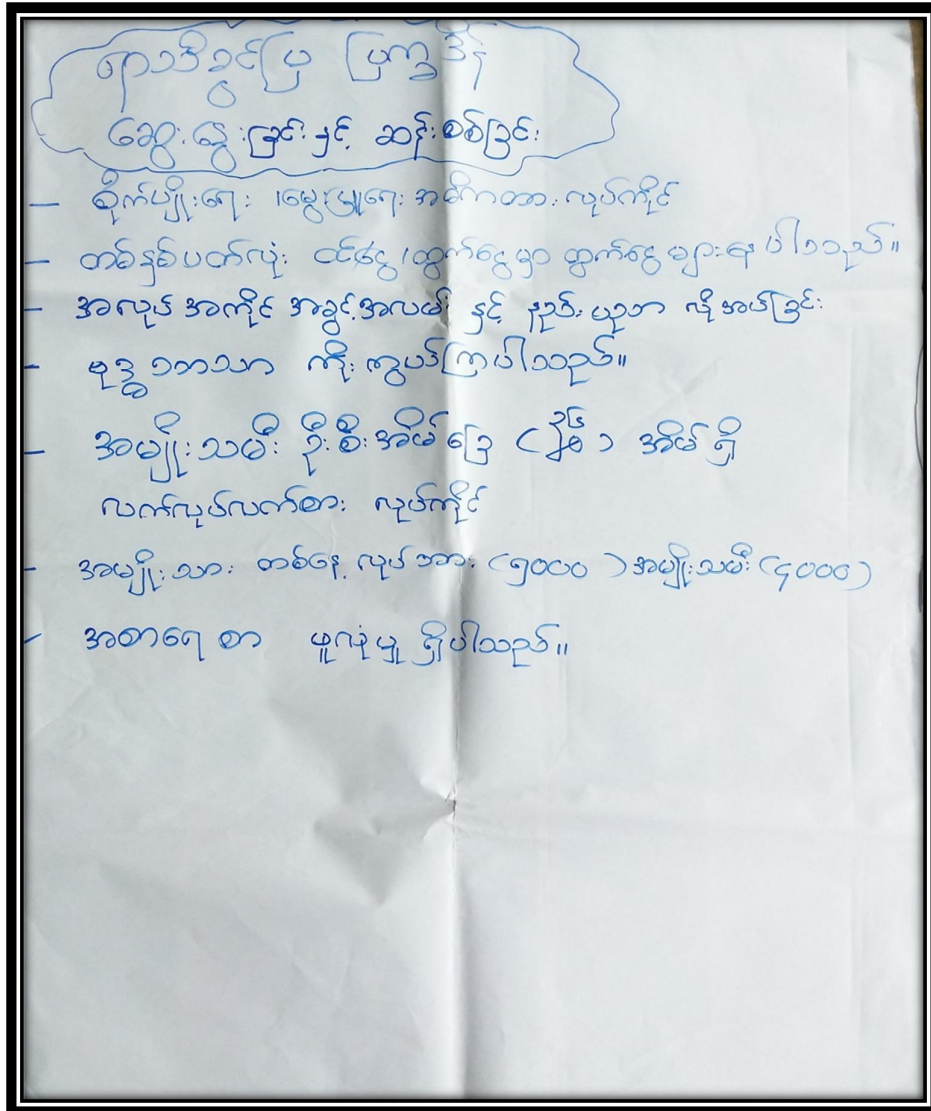 ရာသီခွင်ပြ ပြက္ခဒိန်
ဆွေးနွေးခြင်းနှင့် ဆန်းစစ်ခြင်း
– စိုက်ပျိုးရေး ၊မွေးမြူရေး အဓိကထား လုပ်ကိုင်
– တစ်နှစ်ပတ်လုံး ဝင်ငွေ/ထွက်ငွေမှာ ထွက်ငွေ များနေပါသည်။
– အလုပ်အကိုင် အခွင့်အလမ်း နှင့် နည်းပညာ လိုအပ်ခြင်း
– ဗုဒ္ဓဘာသာ ကိုးကွယ်ကြပါသည်။
– အမျိုးသမီး ဦးစီးအိမ်ခြေ ( ) အိမ်ရှိ
လက်လုပ်လက်စား လုပ်ကိုင်
– အမျိုးသား တစ်နေ့ လုပ်အား (၅၀၀၀) အမျိုးသမီး (၄၀၀၀)
– အစာရေစာ ဖူလုံမှု ရှိပါသည်။